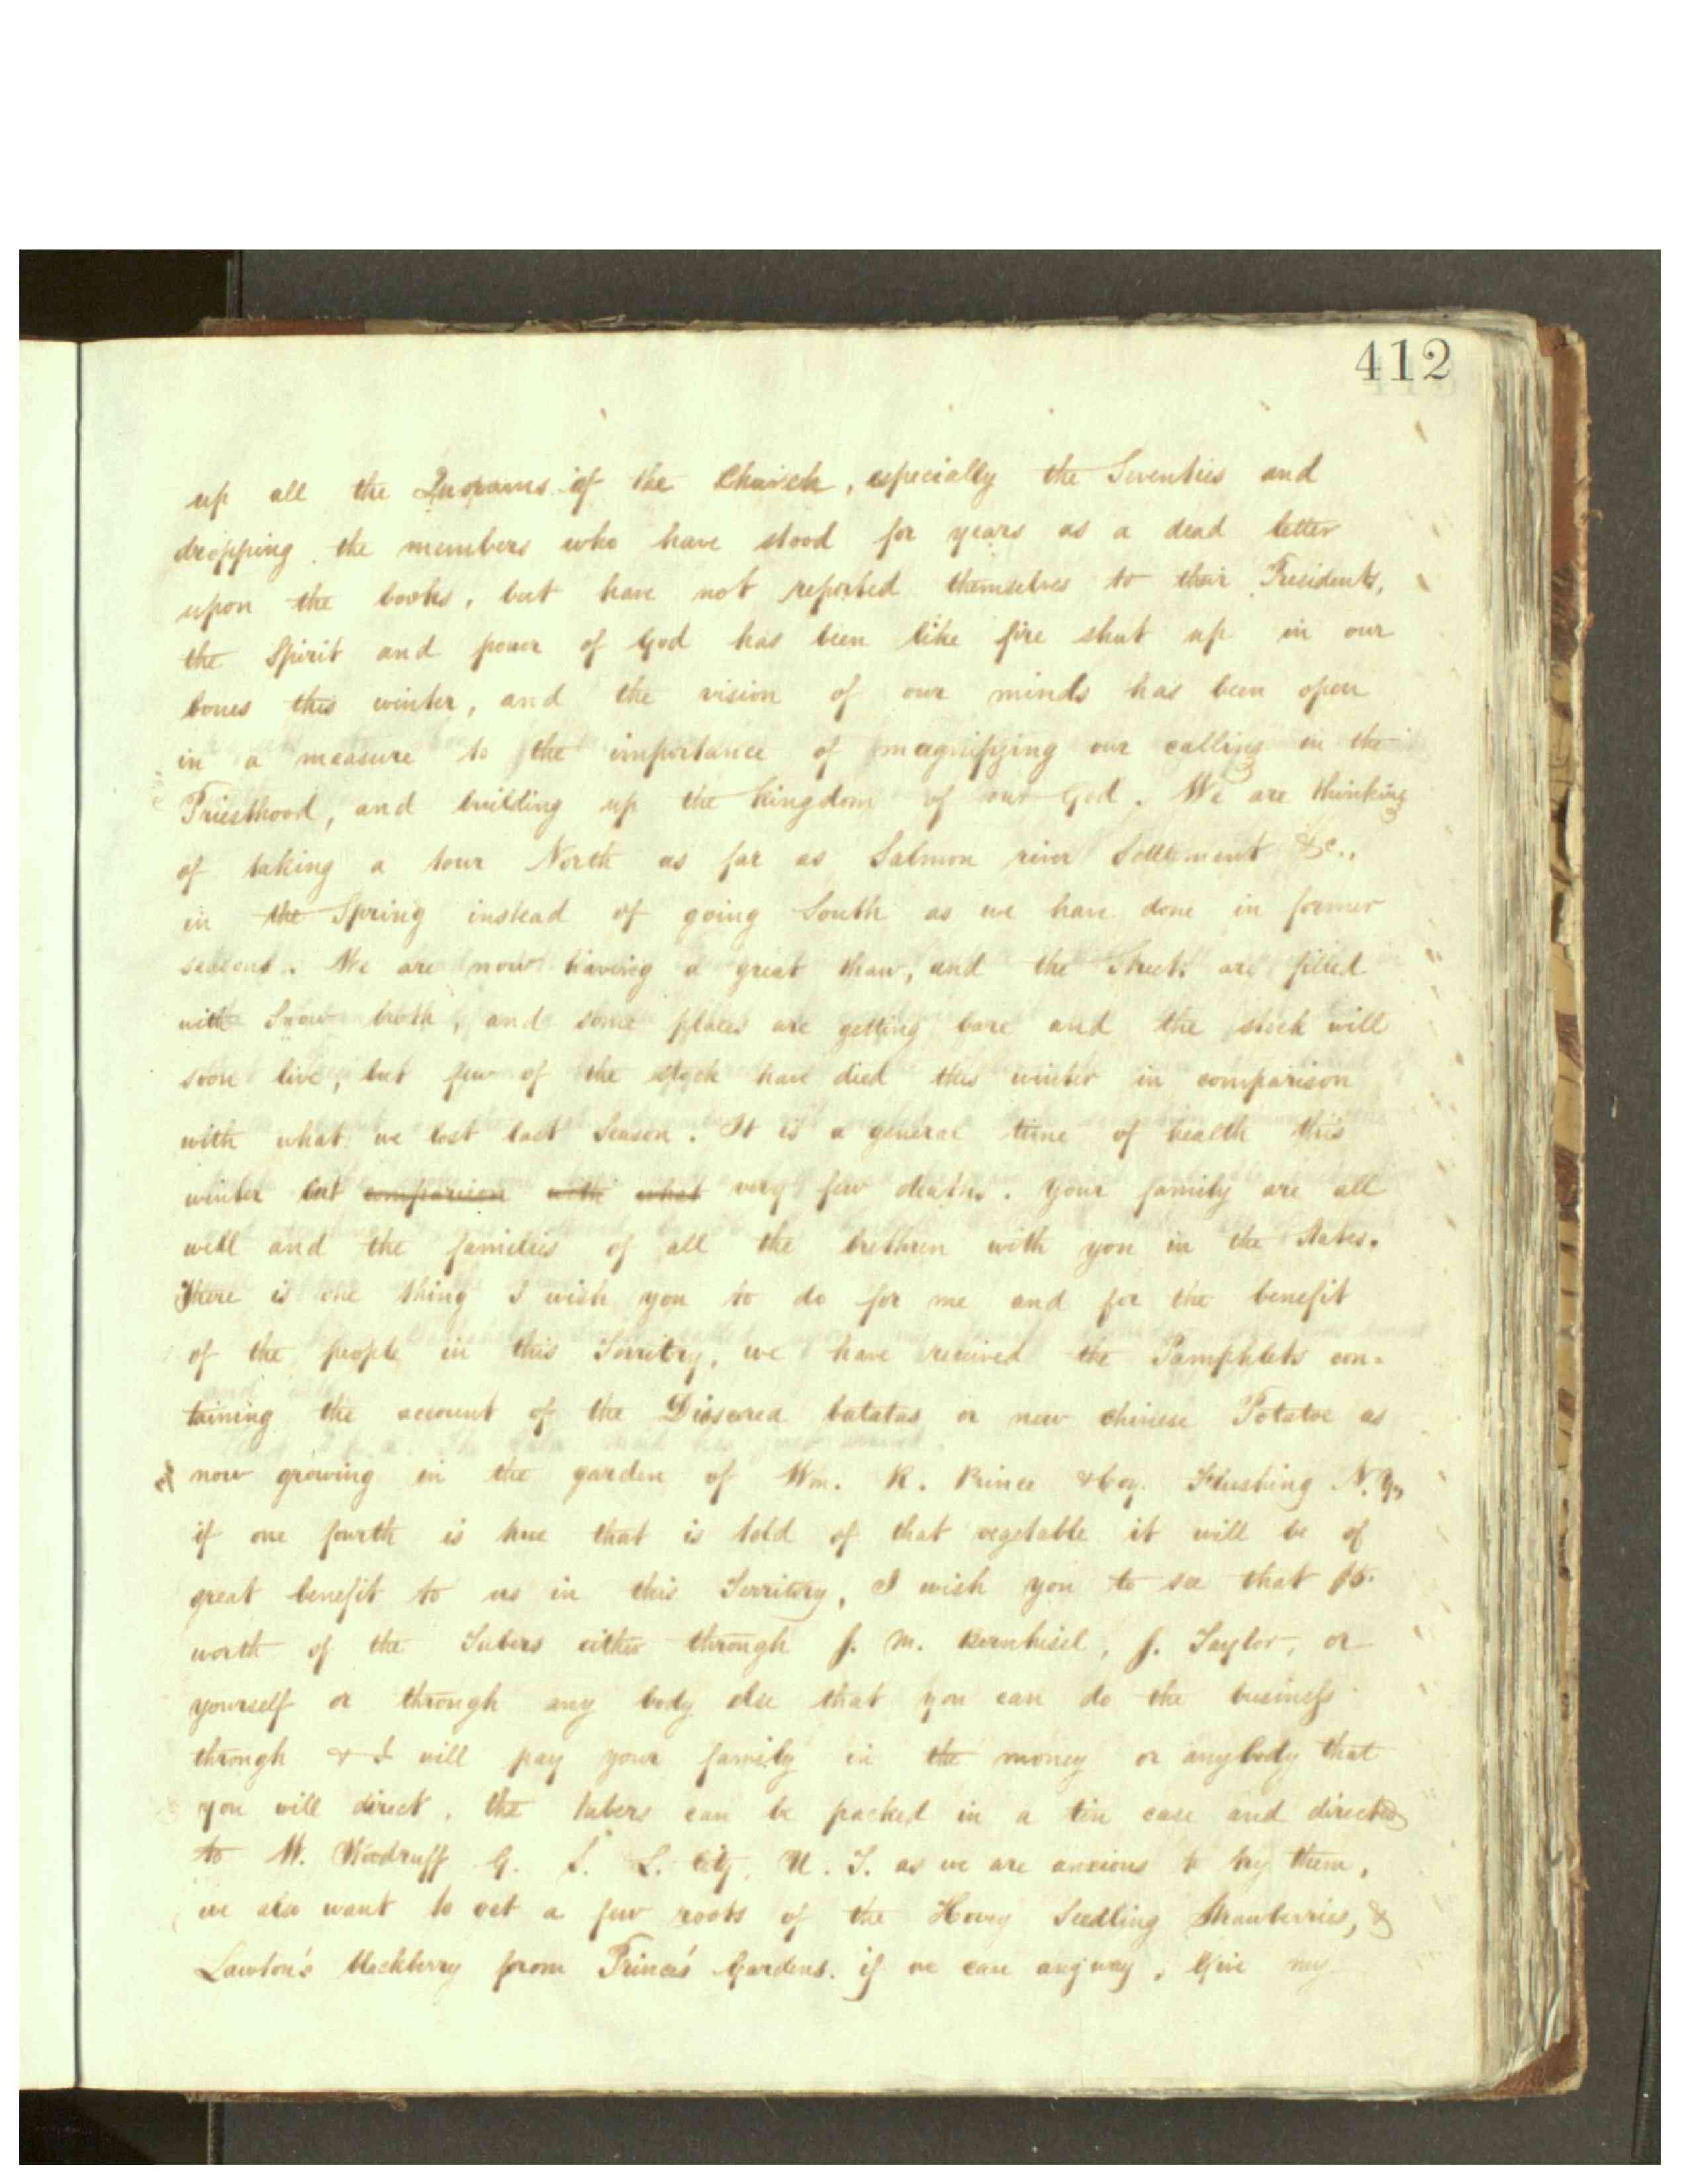 412
up all the Quorums of the Church, especially the Seventies and
dropping the members who have stood for years as a dead letter
upon the books, but have not reported themselves to their Presidents,
the Spirit and power of God has been like fire shut up in our
bones this winter, and the vision of our minds has been open
in a measure to the importance of magnifying our calling in the
Priesthood, and building up the kingdom of our God. We are thinking
of taking a tour North as far as Salmon river Settlement &c.,
in the Spring instead of going South as we have done in former
seasons. We are now having a great thaw, and the Streets are filled
with Snow broth, and some places are getting bare and the stock will
soon live, but few of the stock have died this winter in comparison
with what we lost last Season. It is a general time of health this
winter but comparison with what very few deaths. Your family are all
well and the families of all the brethren with you in the States.
There is one thing I wish you to do for me and for the benefit
of the people in this Territory, we have received the Pamphlets con-
taining the account of the Dioscorea batatas or new chinese Potatoe as
now growing in the garden of Wm. R. Prince & Coy. Flushing N. Y.,
if one fourth is true that is told of that vegetable it will be of
great benefit to us in this Territory, I wish you to see that $5.
worth of the Tubers either through J. M. Bernhisel, J. Taylor, or
yourself or through any body else that you can do the business
through & I will pay your family in the money or anybody that
you will direct, the tubers can be packed in a tin case and directed
to W. Woodruff G. S. L. City, U. T. as we are anxious to try them,
we also want to get a few roots of the Hovey Seedling Strawberries, &
Lawton's blackberry from Prince's Gardens. if we can anyway, Give my